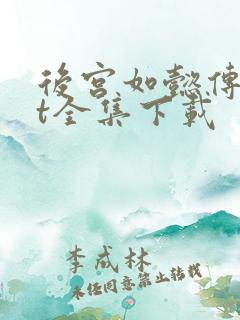 後宮如懿傳
t全集下載
李成林
未经同意禁止转载